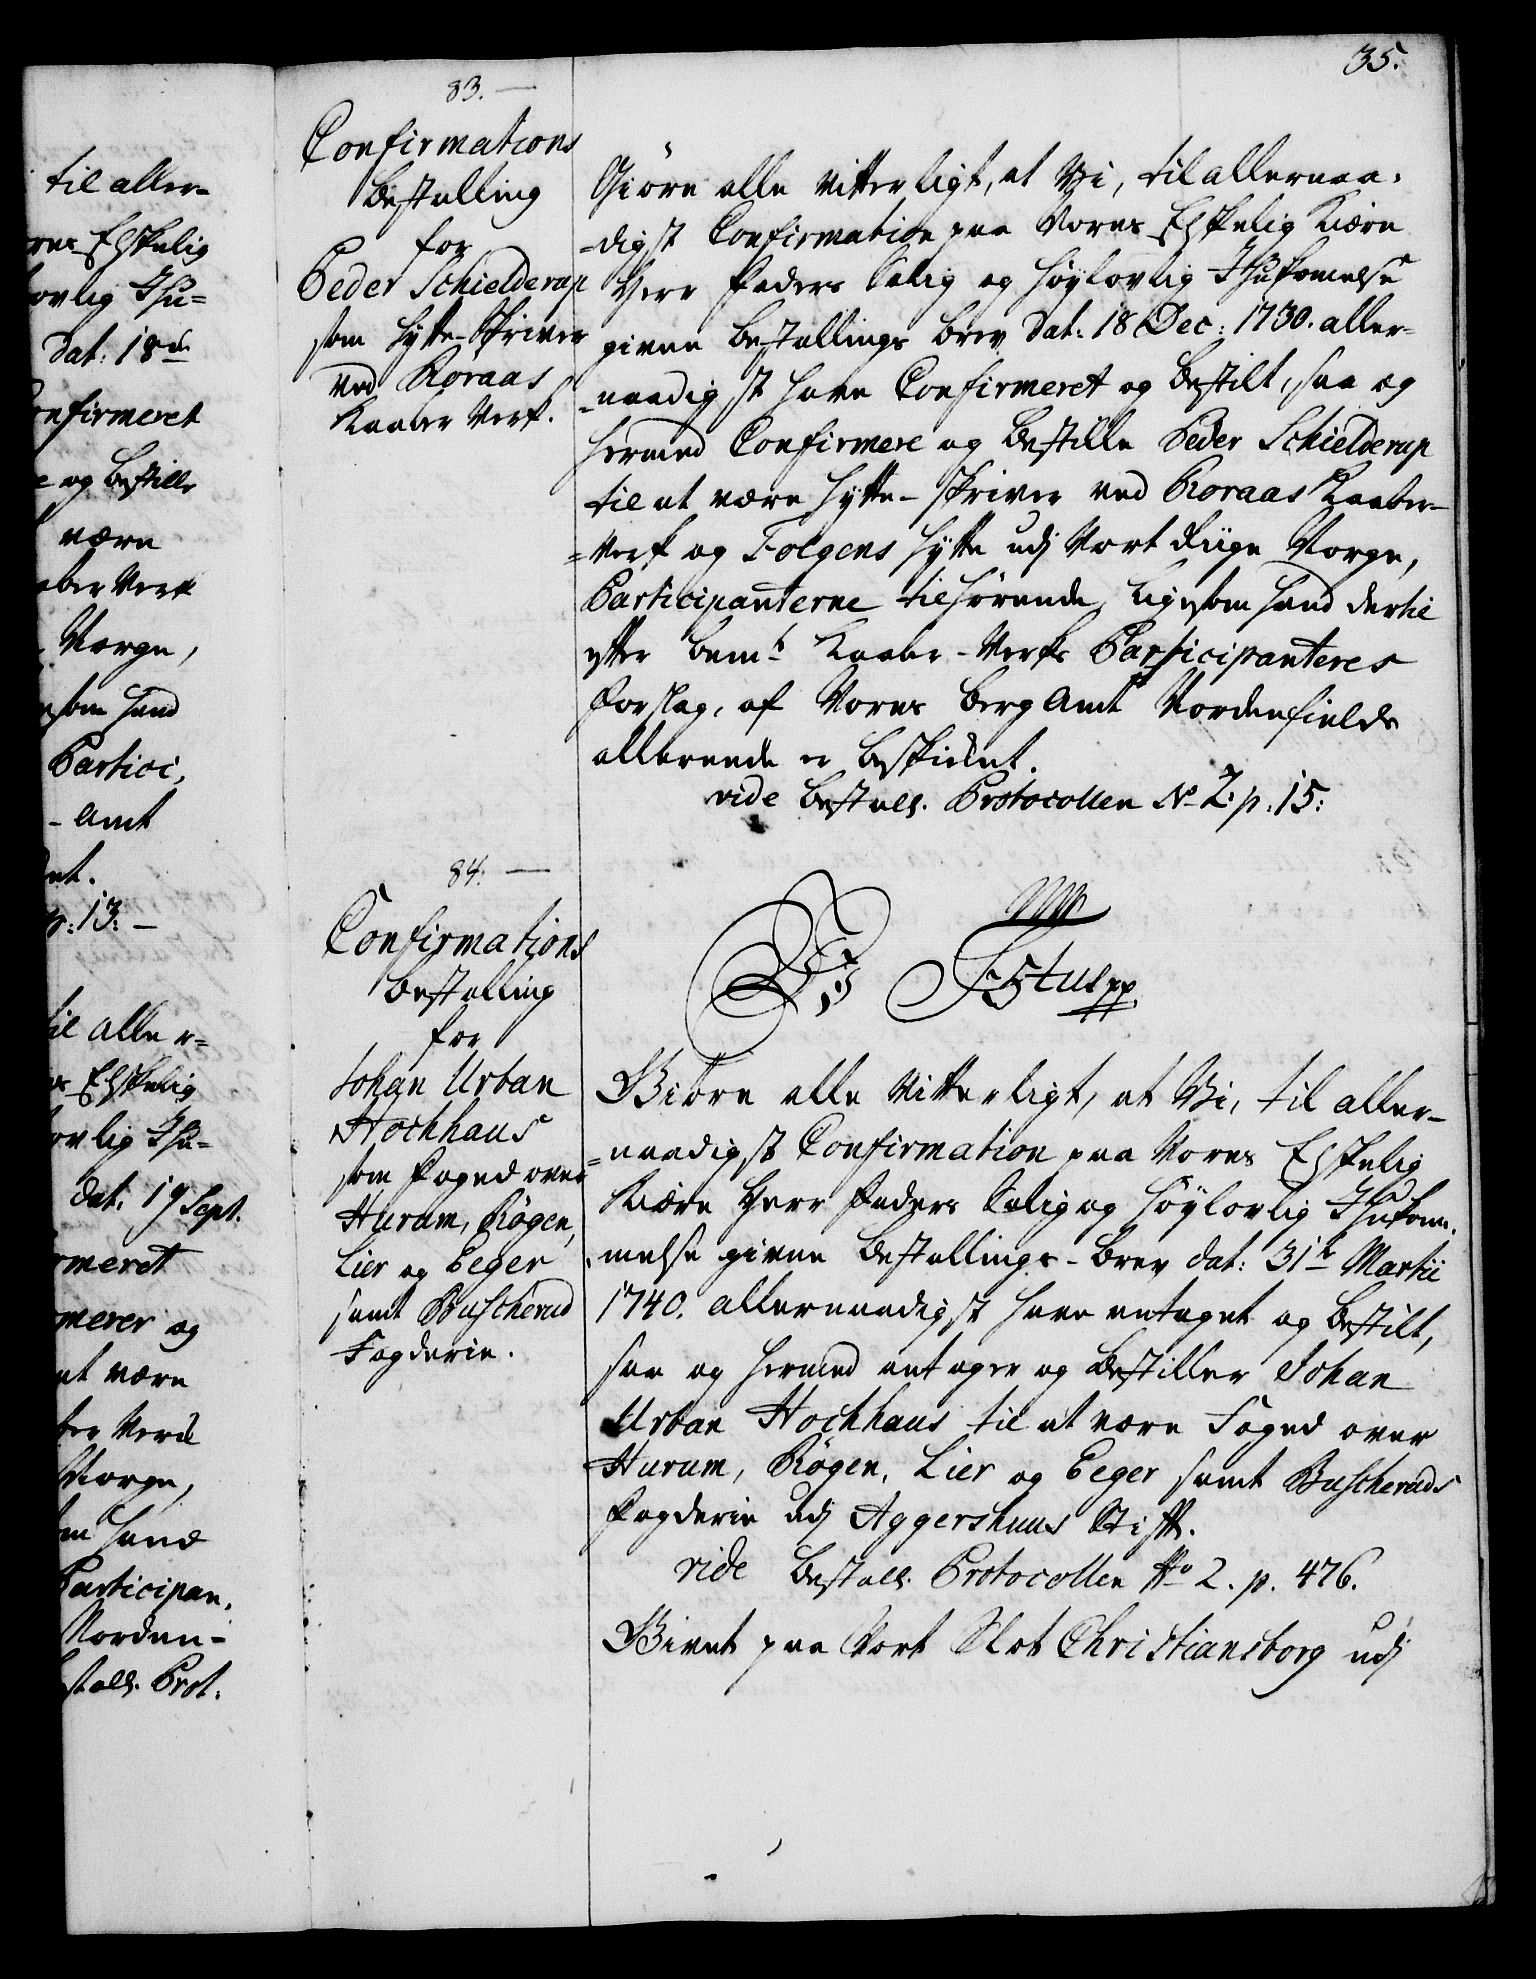 35.
til aller=
ores Elskelig
lovlig Ihu=
Dat: 18de
onfirmeret
e og bestille
være
aber Verk
Norge,
som hand
Partici,
- Amt
det.
p: 13: -
til aller=
es Elskelig
ovlig Ihu=
dat. 19 Sept.
rmeret
merer og
at være
ber Verk
Norge,
om hand
Participan,
Norden=
stall. Prot:
83. —
Confirmations
Bestalling
for
Peder Schielderup
som Hytte-Skriver
ved Roraas
Kaaber Verk.
Giöre alle vitterligt, at Vi, til allernaa-
-digst Confirmation paa Vores Elskelig Kiære
Herr Faders Salig og Høylovlig Ihukomelse
givne Bestallings Brev Dat: 18 Dec: 1730. aller-
-naadigst have Confirmeret og bestilt, saa og
hermed Confirmere og bestille Peder Schielderup
til at være Hytte-Skriver ved Roraas Kaaber-
=Verk og Tolgens Hytte udj Vort Riige Norge,
Participanterne tilhørende, ligesom hand dertil
efter bemte Kaaber-Verks Participanteres
Forslag, af Vores Berg Amt Nordenfields
allerede er beskikket.
vide Bestall. Protocollen No 2: p. 15:
84. —
Confirmations
Bestalling
for
Johan Urban
Hochhaus
som Foged over
Hurum, Røgen,
Lier og Eeger
samt Buscherud
Fogderie.
Vi F5tus pp
Giöre alle Vitterligt, at Vi, til aller-
=naadigst Confirmation paa Vores Elskelig
Kiære Herr Faders Salig og Høylovlig Ihukom-
-melse givne Bestallings-Brev dat: 31te Martii
1740. allernaadigst have antaget og bestilt,
saa og hermed antager og bestiller Johan
Urban Hochhaus til at være Foged over
Hurum, Røgen, Lier og Eeger samt Buscheruds
Fogderie udj Aggershuus Stift.
vide Bestall. Protocollen No 2. p. 476.
Givet paa Vort Slot Christiansborg udj